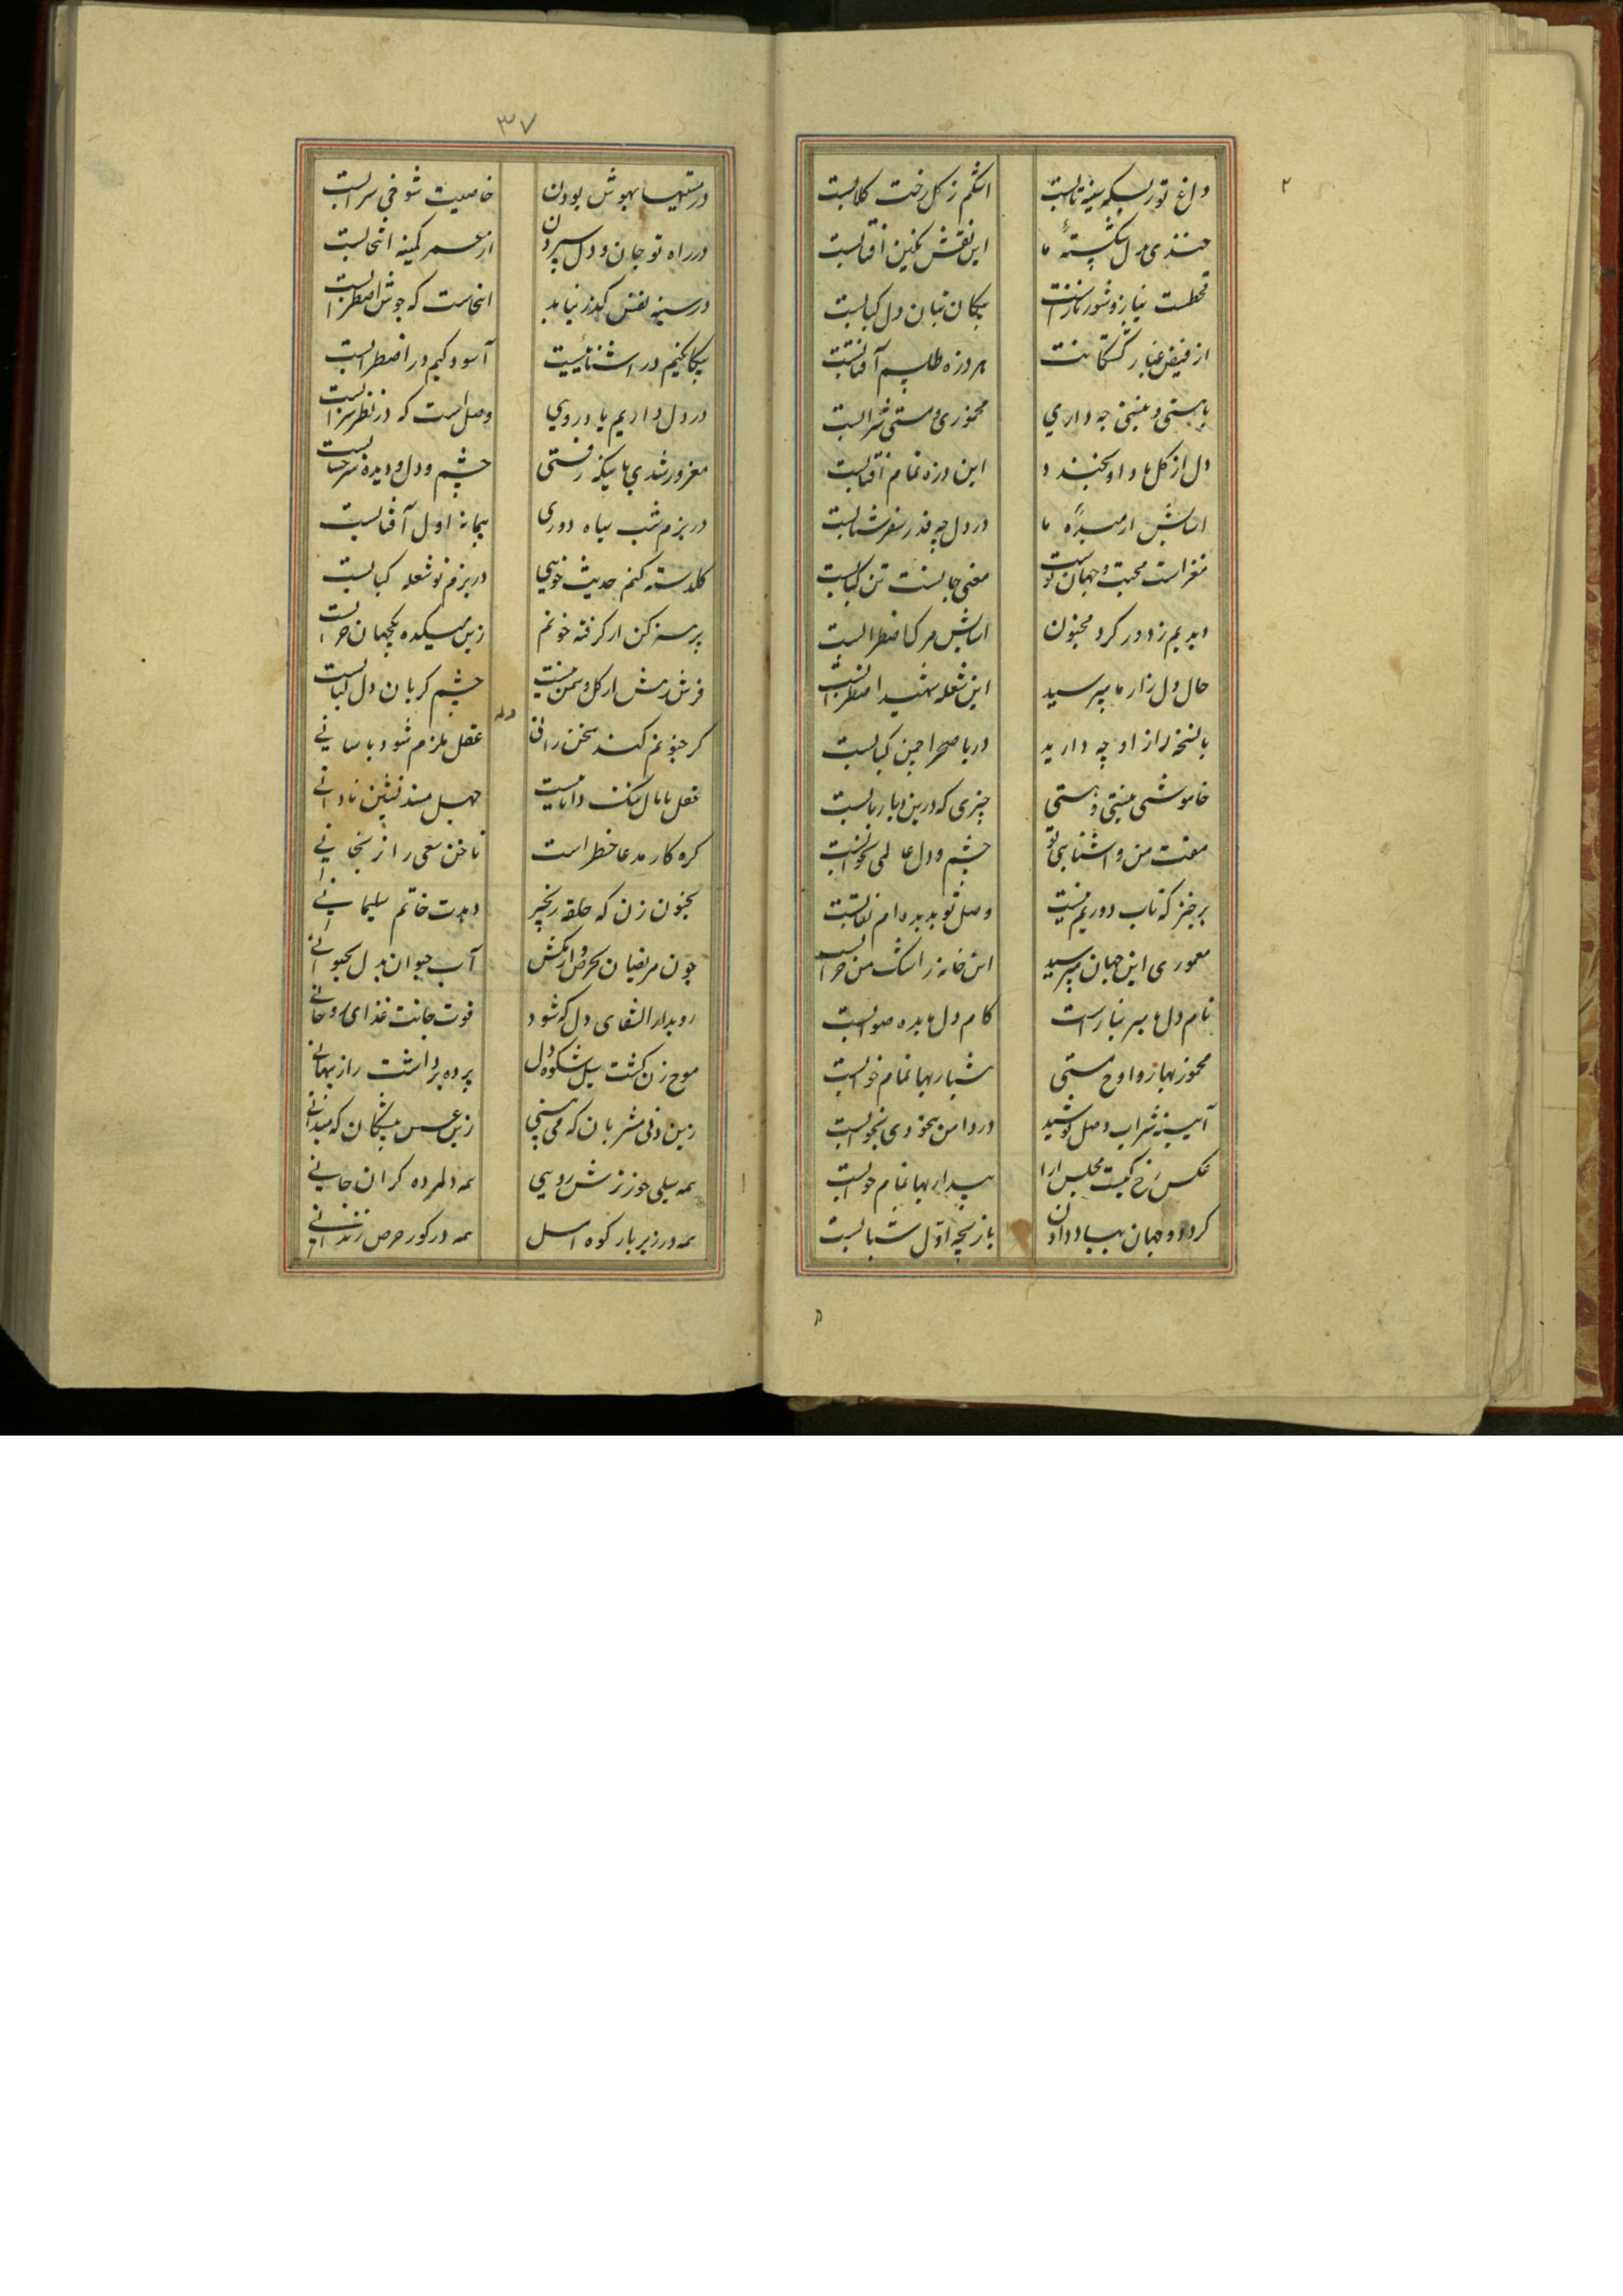 داغ تو ز بسکه سینه تابست اشکم ز کل رخت کلابست
چندی دل شکستهٔ ما این نقش نکین آفتابست
قحطست نیاز و شور نازت پیکان تبان دل کبابست
از فیض غبار کشتکانت هر ذره طلسم آفتابست
با هستی و نیستی چه داری مخموری و مستی شرابست
دل از کل ما و او بخندد این ذره تمام آفتابست
اسایش ارمیدهٔ ما در دل چه قدر سفر شتابست
مغز است محبت و جهان پوست معنی
دیدیم ز دور کرد مجنون اسایش مرک اضطرابست
حال دل زار ما مپرسید این شعله شهید اضطرابست
با نسخهٔ راز او چه دارید دریا صحرا چمن کبابست
خاموشی نیستی و هستی چیزی که درین دیار بابست
مفت من و آشنایی تو چشم و دل عالمی بخوابست
برخیز که تاب دوریم نیست وصل تو بدیده ام نقابست
معموری این جهان مپرسید این خانه ز اشک من خرابست
نام دل ما سر نیاز است کام دل ما بده صوابست
مخمور بهار و اوج مستی هشیاریها تمام خوابست
آیینه شراب وصل نوشید در دامن بیخودی بخوابست
عکس رخ کیست مجلس ارا بیداریها تمام خوابست
کرد دو جهان بباد دادن بازیچه اول شبابست
در مستیها بهوش بودن خاصیت شوخی سرابست
در راه تو جان و دل سپردن از عمر کمینه انتخابست
در سینه نفس بکدر نیابد اینجاست که جوش اضطرابست
بیکانکیم در اشناییست آسودکیم در اضطرابست
در دل داریم یاد رویی وصل است که در نظر سرابست
مغرور شدی بما چه رفتی چشم و دل و دیدهٔ
در بزم شب سیاه دوری پیمانه اول آفتابست
کلدسته کنم حدیث خویی در بزم تو شعله کبابست
پرهیز کن ار کرفته خونم زین میکده یکجهان خرابست
فرش رهش ار کل و سمن نیست چشم کریان دل کبابست
وله
کر جنونم کند سخن رانی عقل ملزم شود باسانی
عقل پامال ننک داناییست جهل مسند نشین نادانی
کره کار مدعا خطر است ناخن سعی را نرنجانی
بجنون زن که حلقه زنجیر دهدت خاتم سلیمانی
چون مریضان بحرص دارو مکش آب حیوان بدل بحیوانی
رو بدار الشفای دل که شود قوت جانت غذای روحانی
موج زن کشت سیل شکوه دل پرده برداشت راز پنهانی
زین دنی مشربان که می بینی زین عسس پیشکان که میدانی
همه سیلی خور ترش رویی همه دلمرده کران جانی
همه در زیر بار کوه امل همه در کور حرص زندانی
۳۷